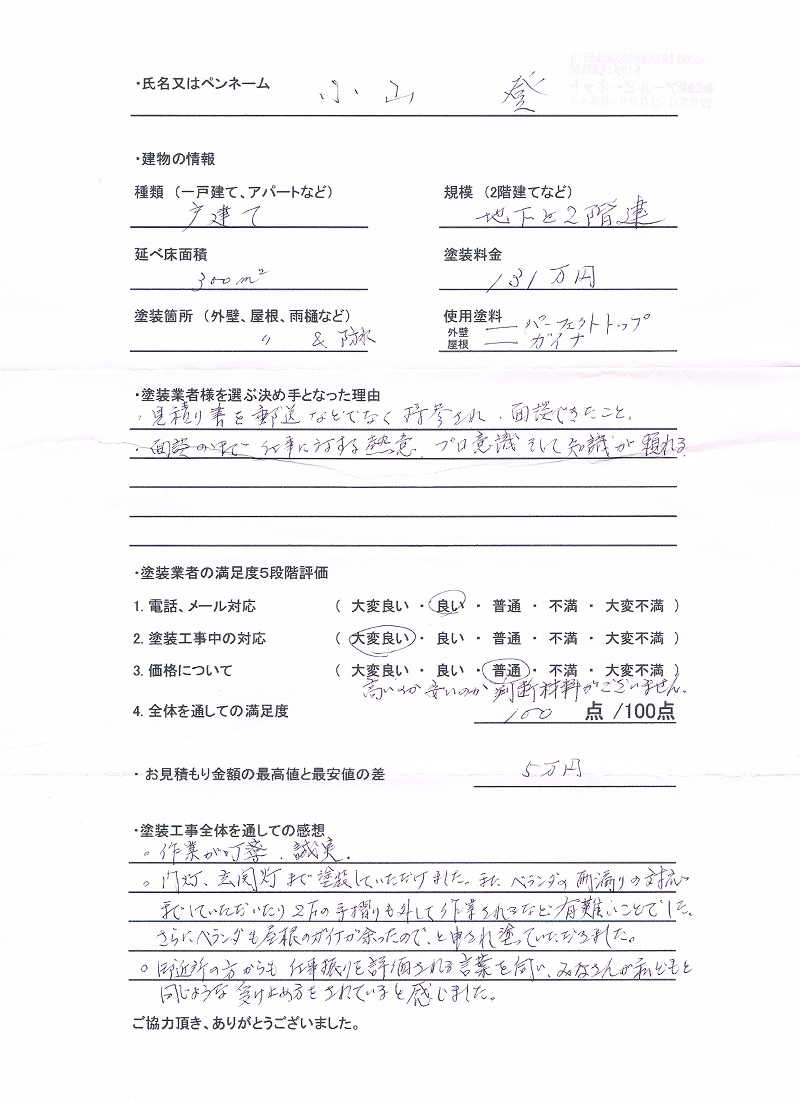 ・氏名又はペンネーム 小山 登
・建物の情報
種類 (一戸建て、アパートなど) 規模 (2階建てなど)
戸建て 地下と2階建
延べ床面積 塗装料金
300m² 131万円
塗装箇所 (外壁、屋根、雨樋など) 使用塗料
〃 & 防水 外壁 ― パーフェクトトップ
屋根 ― ガイナ
・塗装業者様を選ぶ決め手となった理由
・見積り書を郵送などでなく持参され、面談できたこと。
・面談の中で仕事に対する熱意、プロ意識そして知識が頼れる
・塗装業者の満足度5段階評価
1. 電話、メール対応 ( 大変良い ・ 良い ・ 普通 ・ 不満 ・ 大変不満 )
2. 塗装工事中の対応 ( 大変良い ・ 良い ・ 普通 ・ 不満 ・ 大変不満 )
3. 価格について ( 大変良い ・ 良い ・ 普通 ・ 不満 ・ 大変不満 )
高いのか安いのか判断材料がございません。
4. 全体を通しての満足度 100 点 /100点
・ お見積もり金額の最高値と最安値の差 5万円
・塗装工事全体を通しての感想
○ 作業が丁寧、誠実。
○ 門灯、玄関灯まで塗装していただけました。また ベランダの雨漏りの
までしていただいたり 2Fの手摺りも外して作業されるなど有難いことでした。
さらにベランダも屋根のガイナが余ったので、と申され塗っていただきました。
○ 御近所の方からも仕事振りを評価される言葉を伺い、みなさんが私どもと
同じような受け止め方をされていると感じました。
ご協力頂き、ありがとうございました。